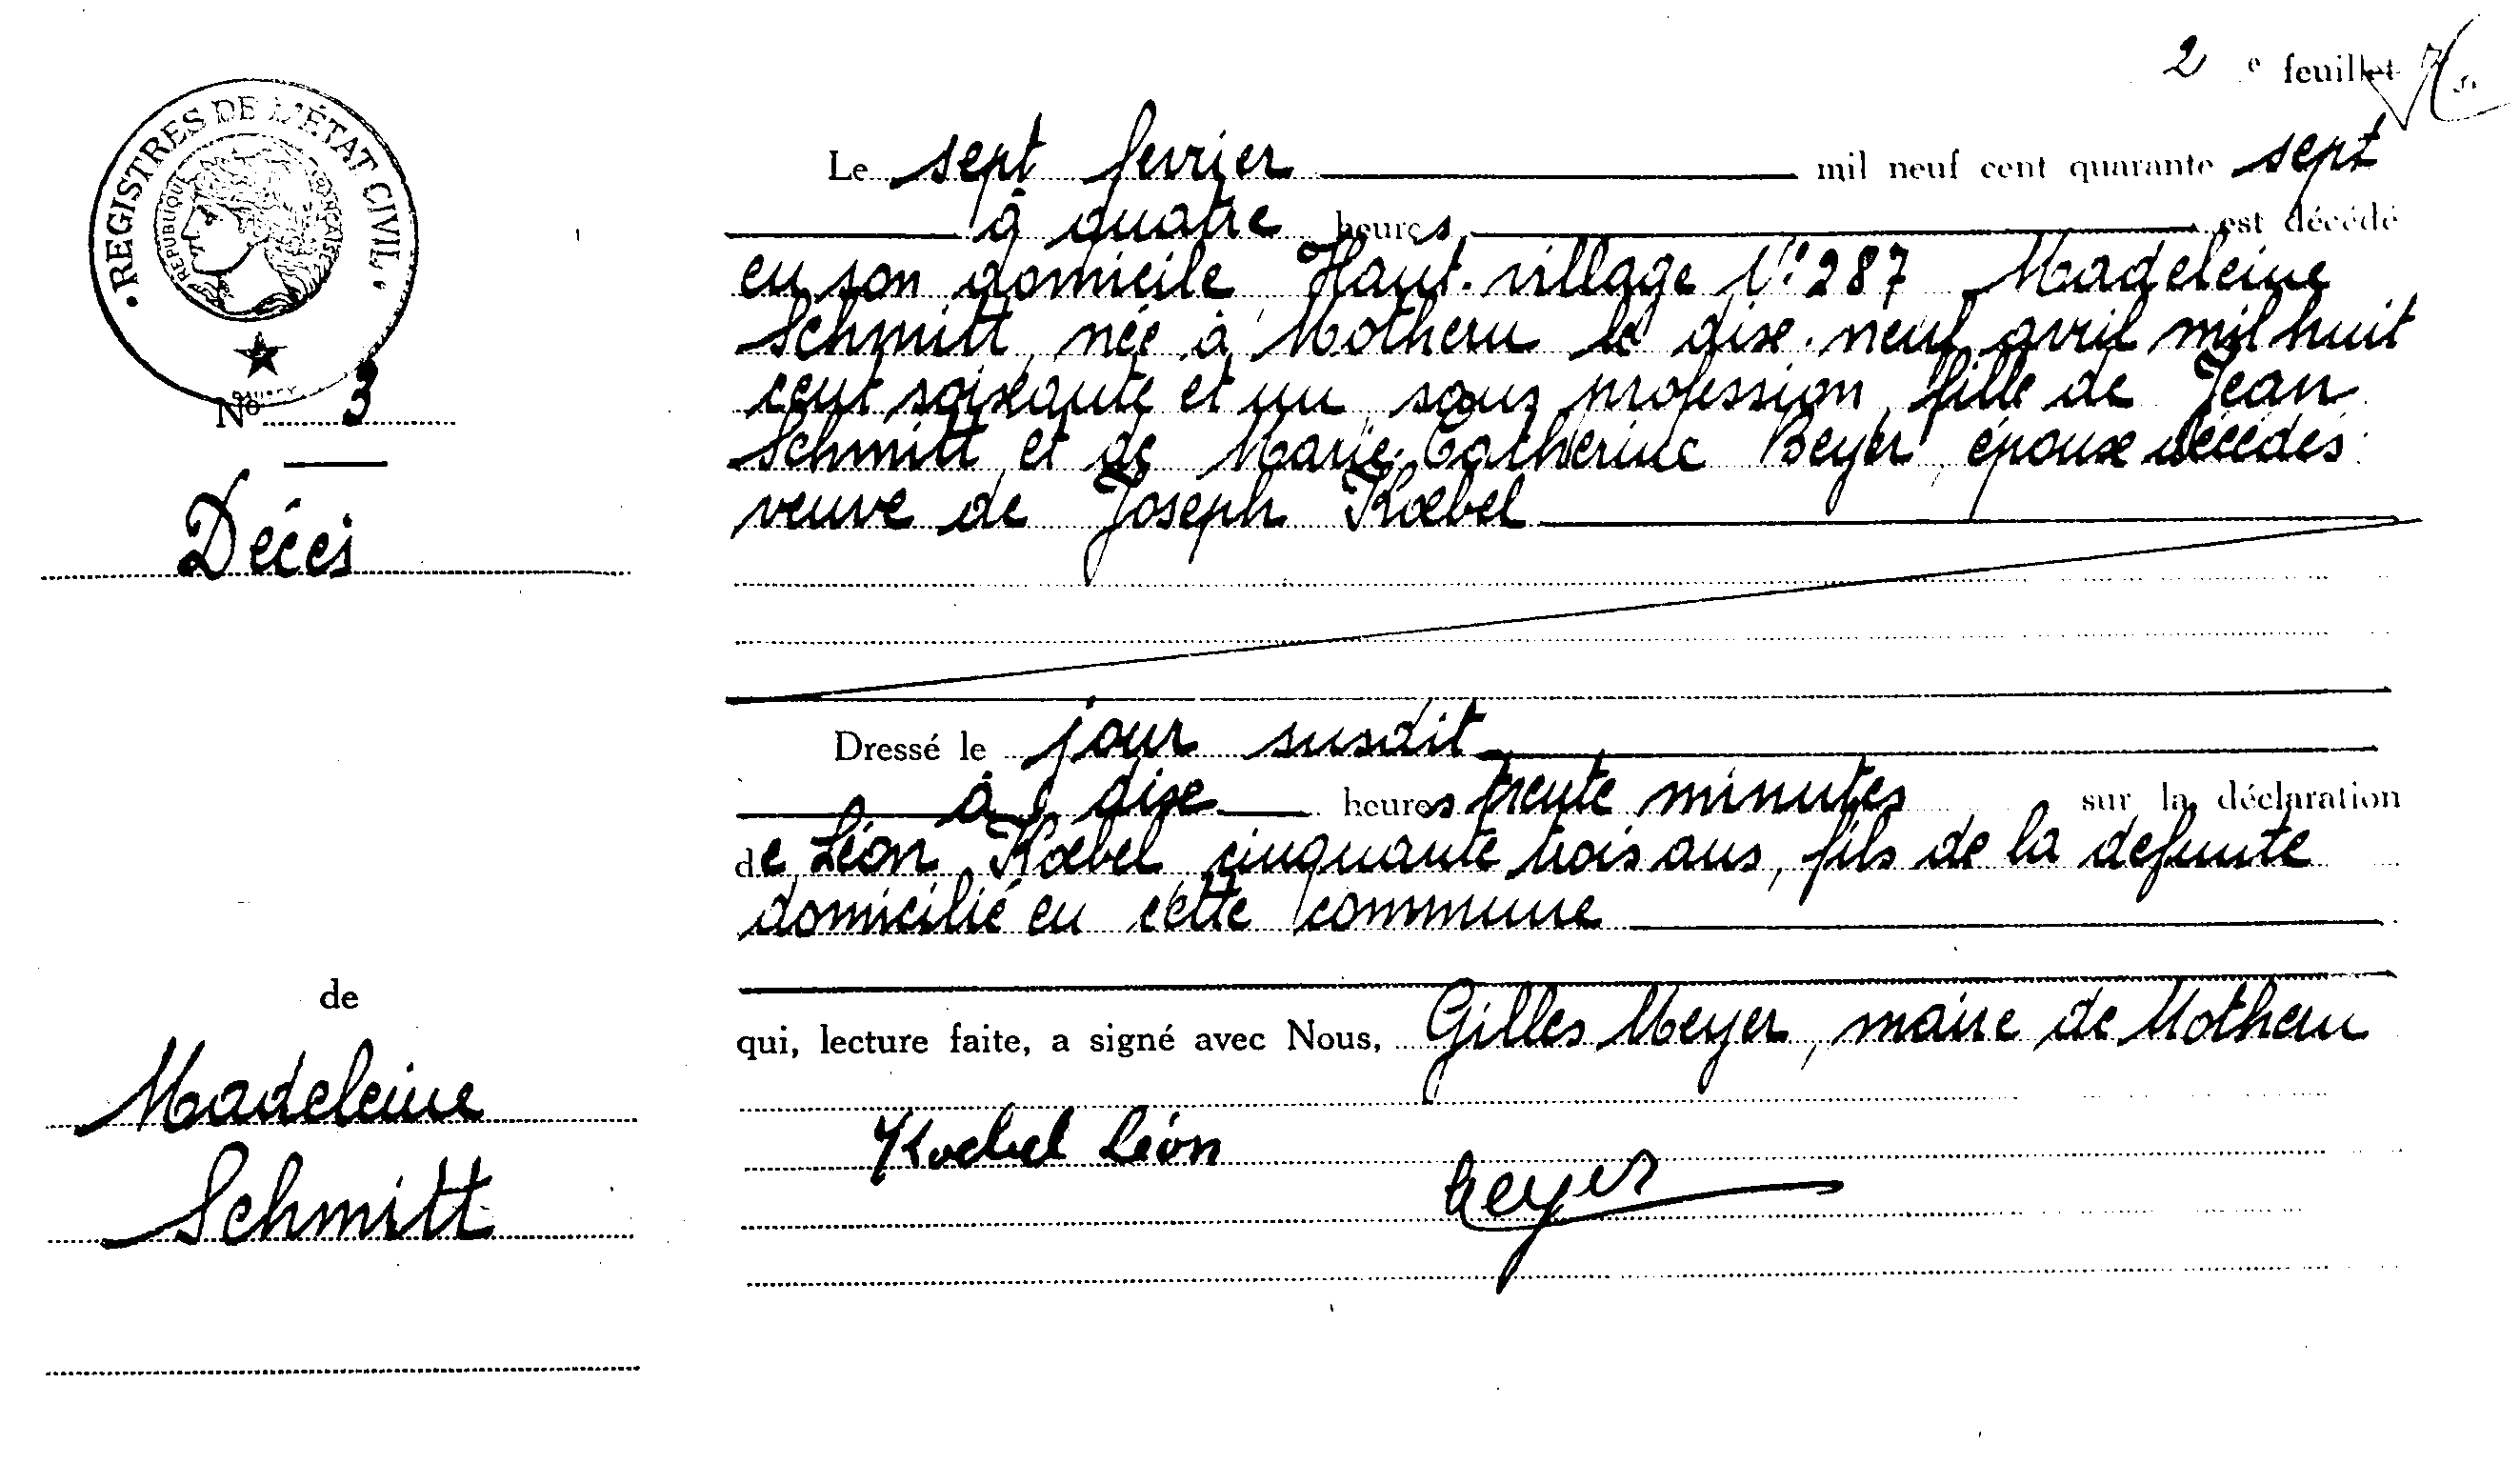 2 e feuillet
REGISTRES DE L'ÉTAT CIVIL
RÉPUBLIQUE FRANÇAISE
Le sept fevrier mil neuf cent quarante sept
à quatre heures est décédé
en son domicile Haut-village N° 287 Madeleine
Schmitt, née à Mothern le dix-neuf avril mil huit
cent soixante et un sans profession, fille de Jean
Schmitt et de Marie-Catherine Beyer, époux décédés
veuve de Joseph Kœbel
N° 3
Décès
de
Madeleine
Schmitt
Dressé le jour susdit
à dix heures trente minutes sur la déclaration
de Léon Kœbel cinquante trois ans, fils de la defunte
domicilié en cette commune
qui, lecture faite, a signé avec Nous, Gilles Meyer, maire de Mothern
Koebel Léon
Meyer